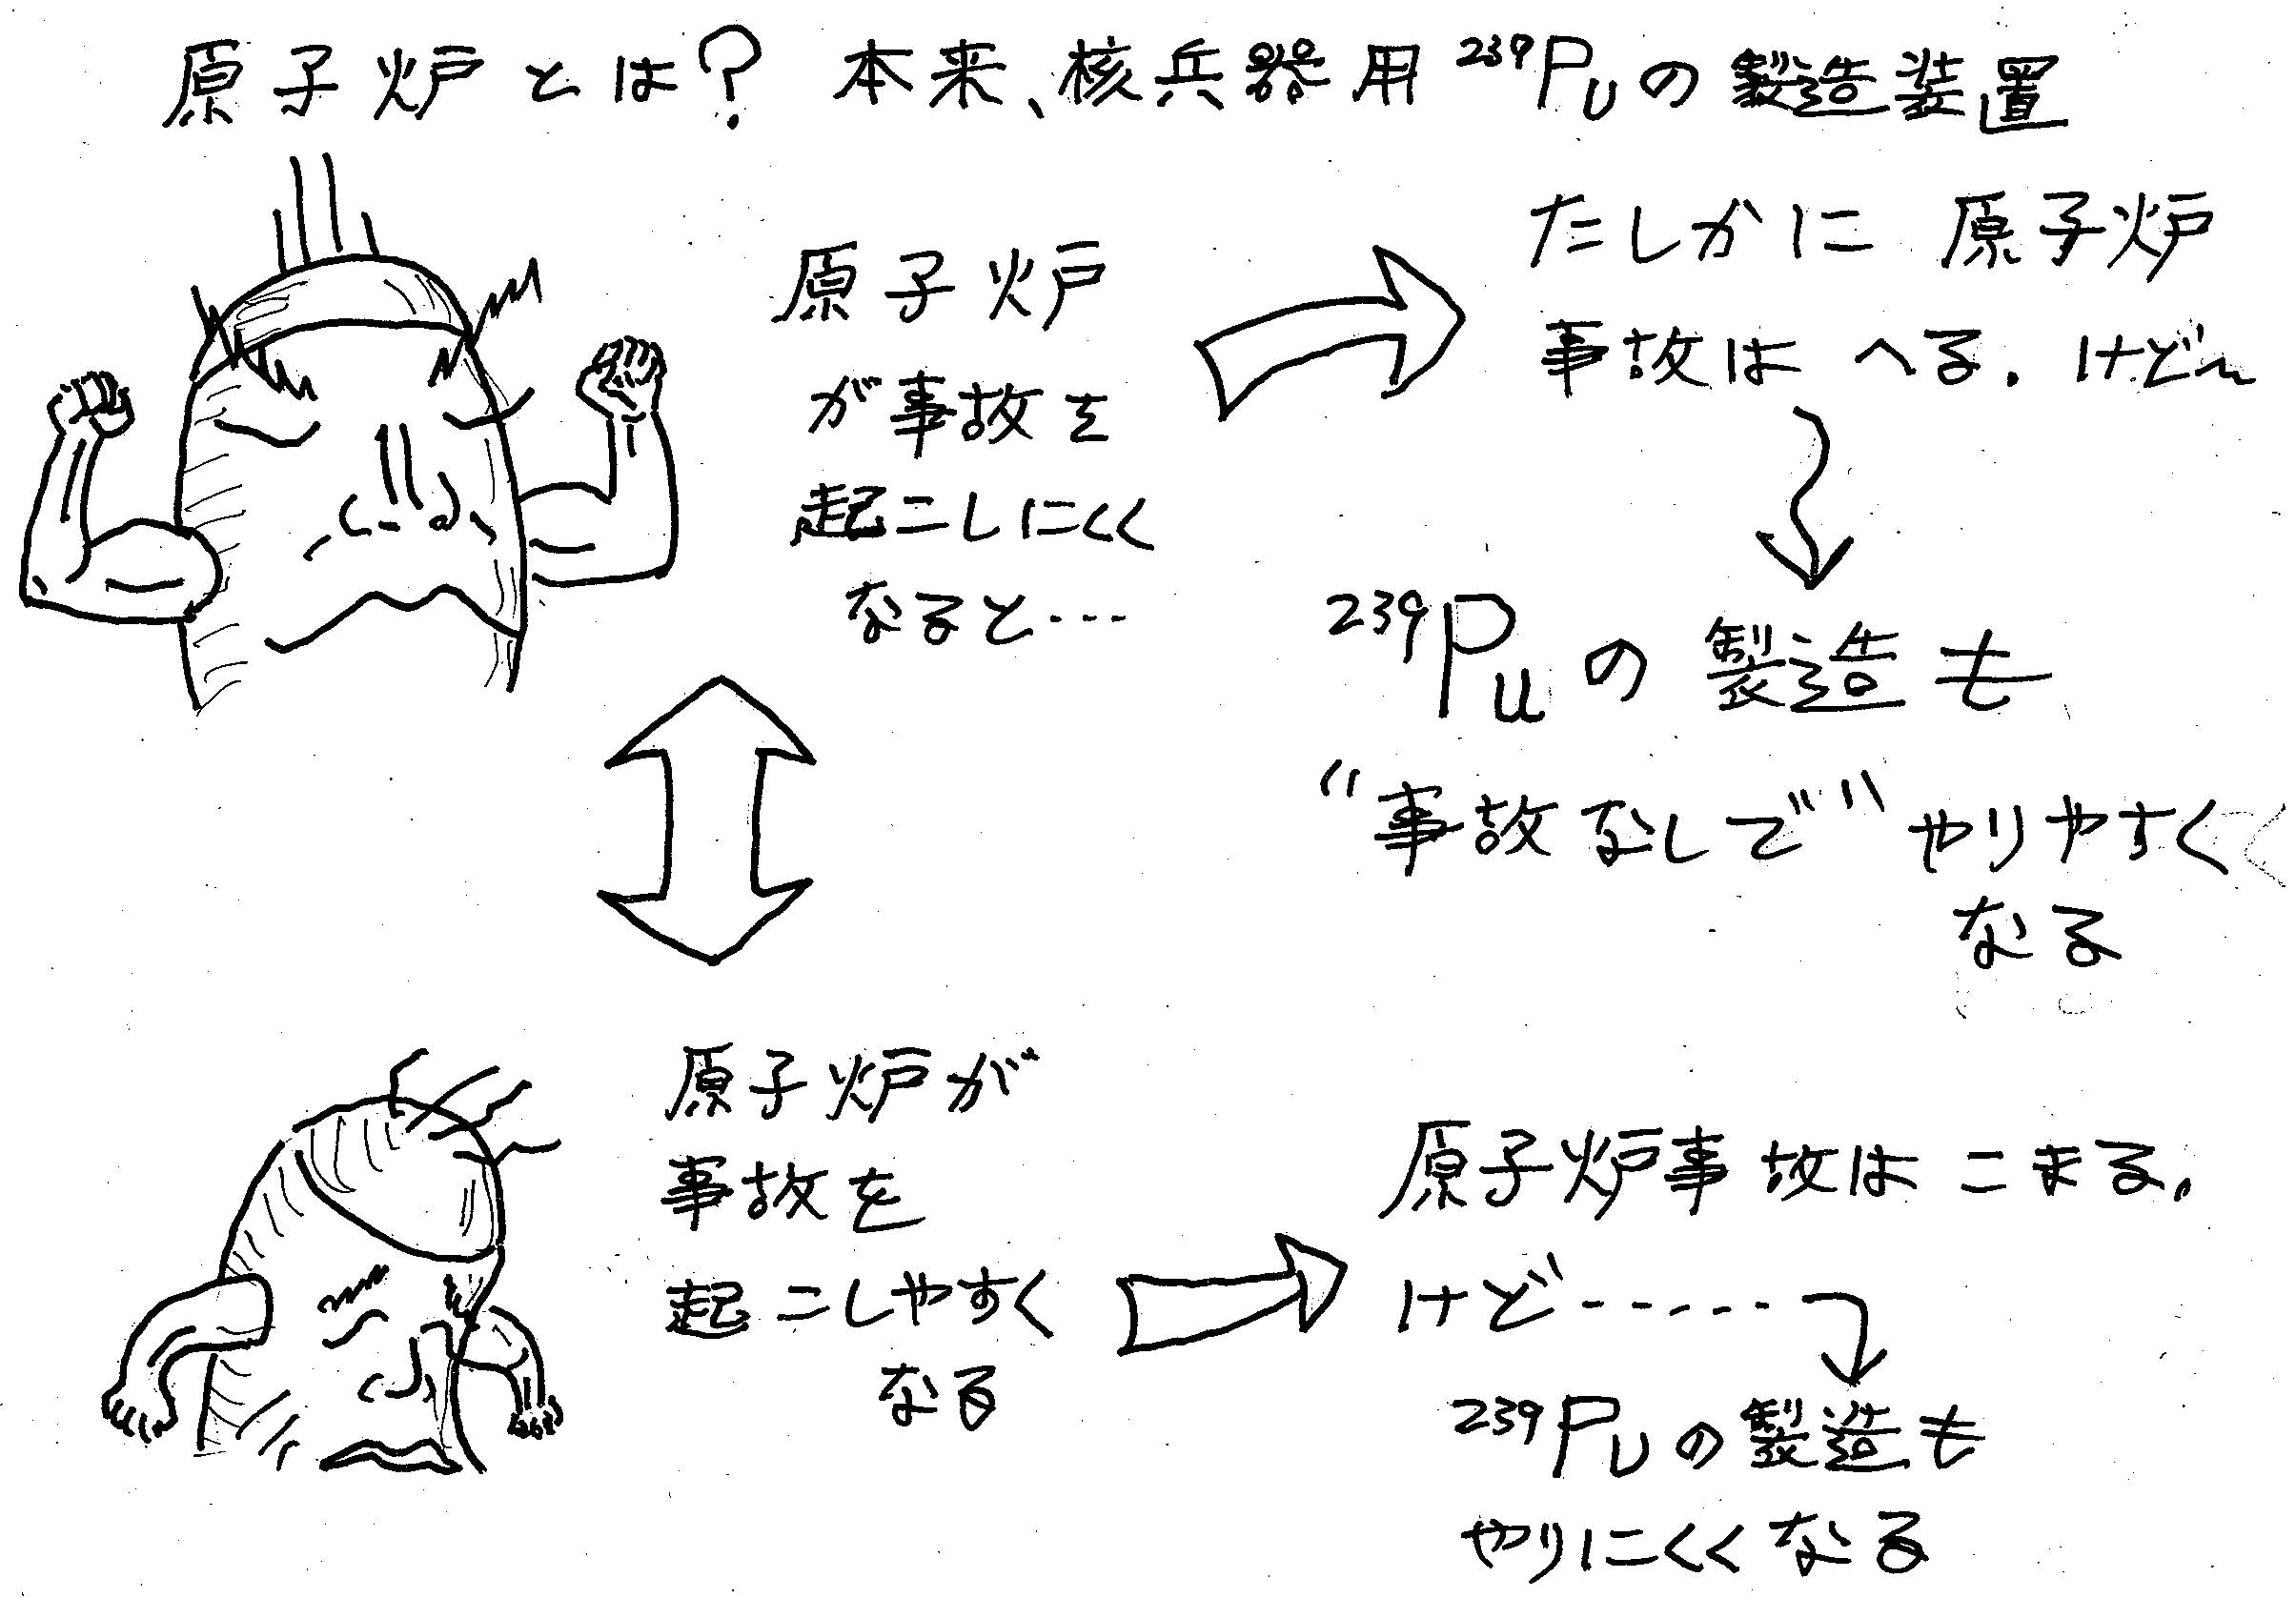 原子炉とは? 本来、核兵器用 ²³⁹Puの製造装置
原子炉
が事故を
起こしにくく
なると…
たしかに 原子炉
事故は へる. けど〜
²³⁹Puの製造も
“事故なしで” やりやすく
なる
原子炉が
事故を
起こしやすく
なる
原子炉事故は こまる.
けど……
²³⁹Puの製造も
やりにくくなる